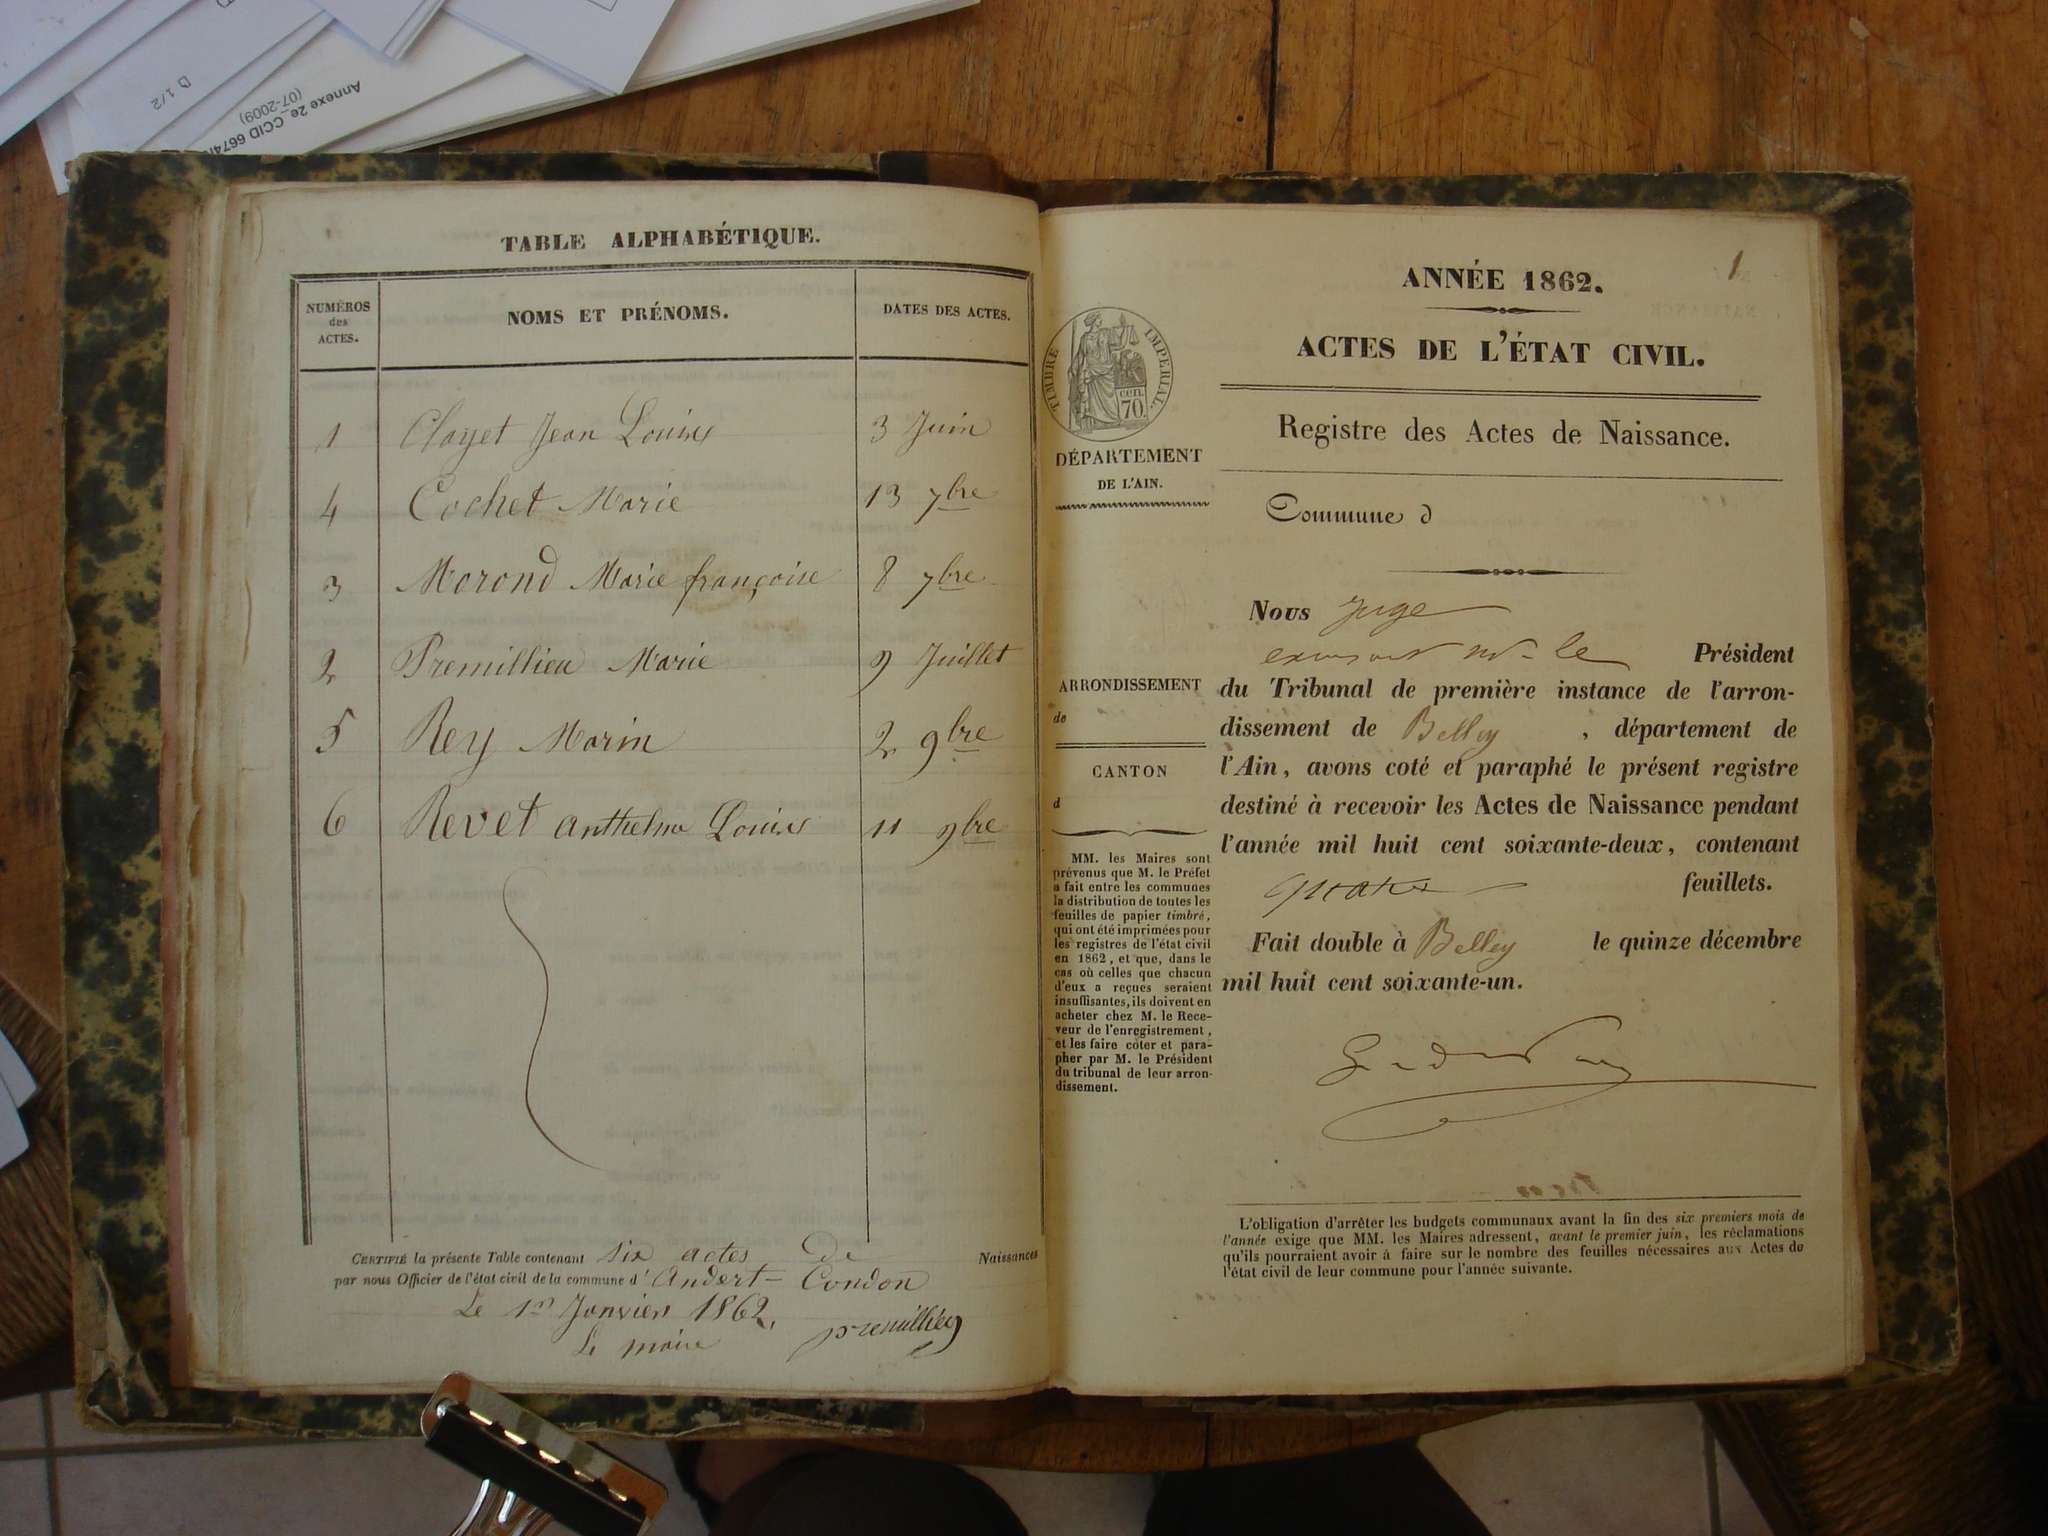 D 1/2
Annexe 2e_CCID 6674
(07-2009)
TABLE ALPHABÉTIQUE.
NUMÉROS des ACTES.
NOMS ET PRÉNOMS.
DATES DES ACTES.
1 Clayet Jean Louis 3 Juin
4 Cochet Marie 13 7bre
3 Morond Marie françoise 8 7bre
2 Premillieu Marie 9 Juillet
5 Rey Marin 2 9bre
6 Revet Anthelme Louis 11 9bre
CERTIFIÉ la présente Table contenant six actes de Naissances
par nous Officier de l'état civil de la commune d'Andert-Condon
Le 1er Janvier 1862,
Le maire premillieu
1
ANNÉE 1862.
ACTES DE L'ÉTAT CIVIL.
Registre des Actes de Naissance.
TIMBRE IMPÉRIAL.
cen.
70.
DÉPARTEMENT
DE L'AIN.
Commune d
ARRONDISSEMENT
de
CANTON
d
MM. les Maires sont
prévenus que M. le Préfet
a fait entre les communes
la distribution de toutes les
feuilles de papier timbré,
qui ont été imprimées pour
les registres de l'état civil
en 1862, et que, dans le
cas où celles que chacun
d'eux a reçues seraient
insuffisantes, ils doivent en
acheter chez M. le Rece-
veur de l'enregistrement,
et les faire coter et para-
pher par M. le Président
du tribunal de leur arron-
dissement.
Nous Juge
le Président
du Tribunal de première instance de l'arron-
dissement de Belley, département de
l'Ain, avons coté et paraphé le présent registre
destiné à recevoir les Actes de Naissance pendant
l'année mil huit cent soixante-deux, contenant
quatre feuillets.
Fait double à Belley le quinze décembre
mil huit cent soixante-un.
L'obligation d'arrêter les budgets communaux avant la fin des six premiers mois de
l'année exige que MM. les Maires adressent, avant le premier juin, les réclamations
qu'ils pourraient avoir à faire sur le nombre des feuilles nécessaires aux Actes de
l'état civil de leur commune pour l'année suivante.